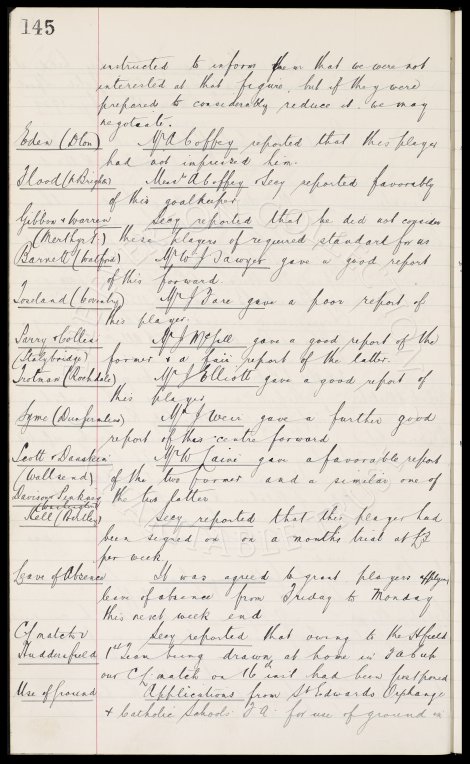 145
instructed to inform them that we were not
interested at that figure, but if they were
prepared to considerably reduce it. we may
negotiate.
Eden (Dton) Mr A Coffey reported that this player
had not impressed him.
Flood (N. Brighton) Messrs A Coffey & Secy reported favorably
of this goalkeeper
Gibbon & Warren Secy reported that he did not consider
(Merthyr T.) these players of required standard for us
Barnett (Watford) Mr W J Sawyer gave a good report
of this forward
Toseland (Coventry) Mr J Fare gave a poor report of
this player.
Mr J McGill gave a good report of the
(Stalybridge) former & a fair report of the latter.
Trotman (Rochdale) Mr J Elliott gave a good report of
this player
Syme (Dunfermline) Mr J Weir gave a further good
report of this centre forward
Scott & Mr gave a favorable report
(Wallsend) of the two former and a similar one of
Davison & the two latter
Kell (Birtley) Secy reported that this player had
been signed on on a months trial at £3
per week
Leave of Absence It was agreed to grant players applying
leave of absence from Friday to Monday
this next week end
C/L match v Secy reported that owing to the H.field
Huddersfield 1st Team being drawn at home in F A Cup
our C/L match on 16th inst had been postponed
Use of Ground Applications from St Edwards Orphange
& Catholic Schools F.A. for use of ground on